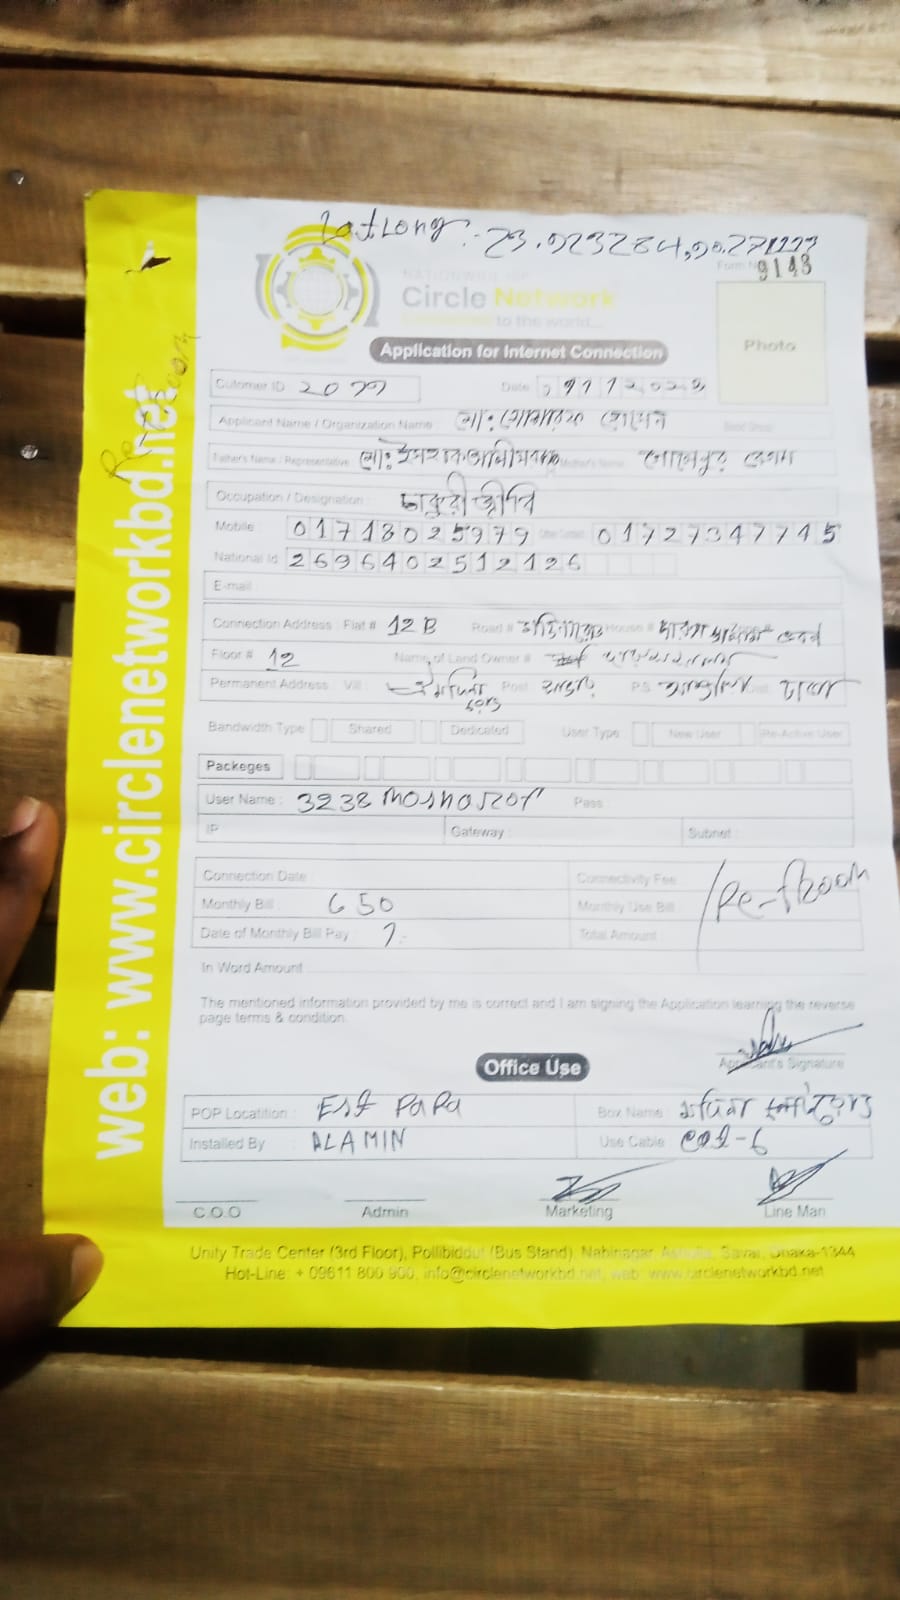 Lat Long :- 23.923284,90.271223
NATIONWIDE ISP
Form No 9143
Circle Network
to the world...
Photo
Application for Internet Connection
Cutomer ID 2077
Date
Applicant Name / Organization Name : মোঃ মোশারফ হোসেন
Father's Name / Representative মোঃ Mother's Name : বেগম
Occupation / Designation : চাকুরীজীবি
Mobile 01713025979 Other Contact 01727347745
National Id 2696402512126
E-mail :
Connection Address : Flat # 12 B Road # House #
Floor # 12 Name of Land Owner #
Permanent Address : Vill : Post P.S Dist
Bandwidth Type Shared Dedicated User Type New User Re-Active User
Packeges
User Name : 3238 Mosharrof Pass :
IP Gateway : Subnet :
Connection Date : Connectivity Fee
Monthly Bill : 650 Monthly Use Bill :
Date of Monthly Bill Pay : 7 Total Amount :
In Word Amount
The mentioned information provided by me is correct and I am signing the Application learning the reverse
page terms & condition.
Applicant's Signature
Office Use
POP Locatition : Est PaPa Box Name : মদিনা
Installed By : ALAMIN Use Cable : cat-6
C.O.O Admin Marketing Line Man
Unity Trade Center (3rd Floor), Pollibiddut (Bus Stand), Nabinagar, Ashulia, Savar, Dhaka-1344
Hot-Line: + 09611 800 900, info@circlenetworkbd.net, web: www.circlenetworkbd.net
web: www.circlenetworkbd.net